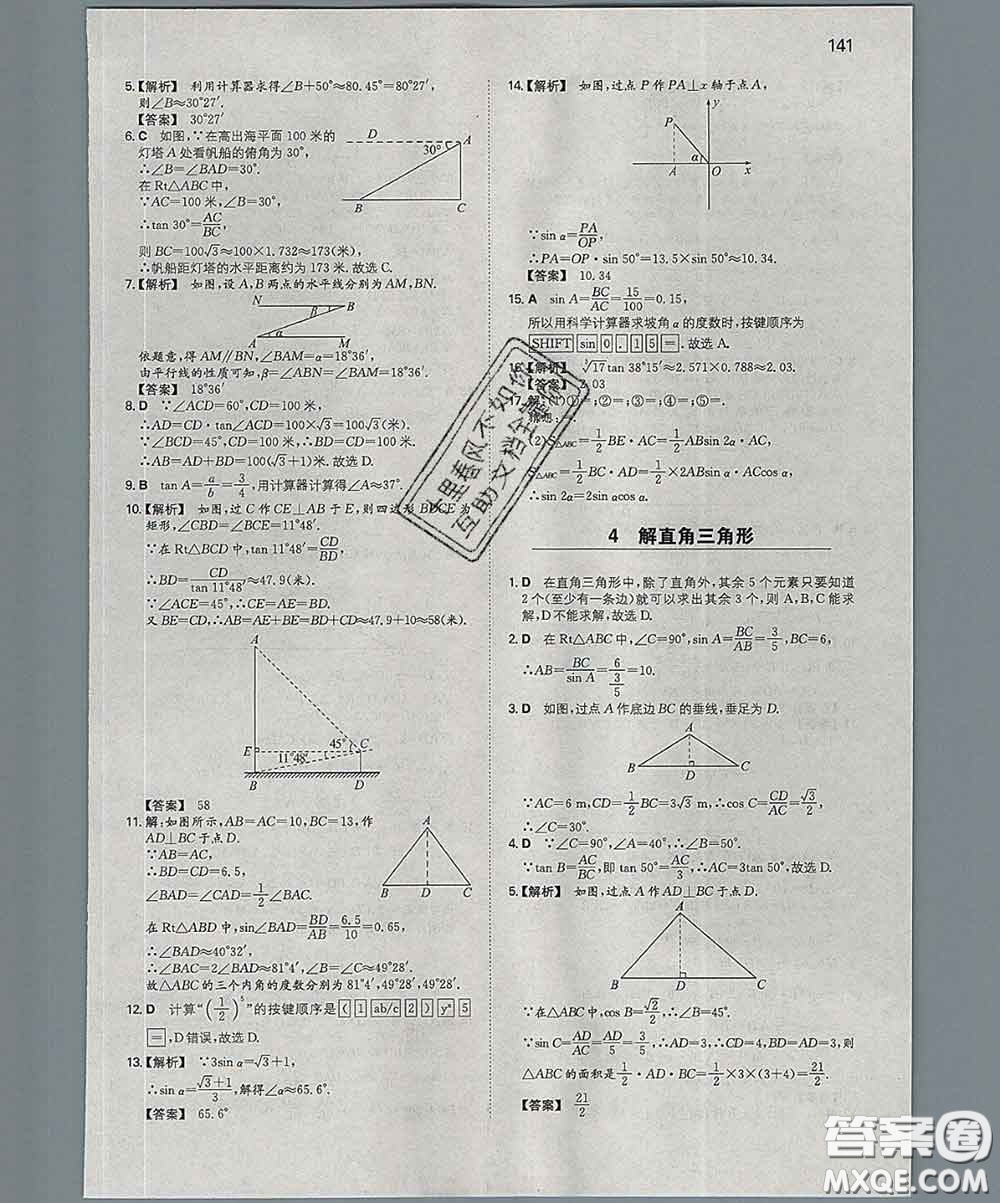 141
5.【解析】 利用计算器求得∠B+50°≈80.45°=80°27′,
则∠B≈30°27′.
【答案】 30°27′
6.C 如图,∵在高出海平面 100 米的
灯塔 A 处看帆船的俯角为 30°,
∴∠B=∠BAD=30°.
在 Rt△ABC 中,
∵AC=100 米,∠B=30°,
∴tan 30°=AC/BC,
则 BC=100√3≈100×1.732≈173(米).
∴帆船距灯塔的水平距离约为 173 米.故选 C.
D
A
30°
B
C
7.【解析】 如图,设 A,B 两点的水平线分别为 AM,BN.
N
B
β
A
α
M
依题意,得 AM∥BN,∠BAM=α=18°36′.
由平行线的性质可知,β=∠ABN=∠BAM=18°36′.
【答案】 18°36′
8.D ∵∠ACD=60°,CD=100 米,
∴AD=CD·tan∠ACD=100×√3=100√3(米).
∵∠BCD=45°,CD=100 米,∴BD=CD=100 米,
∴AB=AD+BD=100(√3+1)米.故选 D.
9.B tan A=a/b=3/4,用计算器计算得∠A≈37°.
10.【解析】 如图,过 C 作 CE⊥AB 于 E,则四边形 BDCE 为
矩形,∠CBD=∠BCE=11°48′.
∵在 Rt△BCD 中,tan 11°48′=CD/BD,
∴BD=CD/tan 11°48′≈47.9(米).
∵∠ACE=45°,∴CE=AE=BD.
又 BE=CD,∴AB=AE+BE=BD+CD≈47.9+10≈58(米).
A
45°
E
C
11°48′
B
D
【答案】 58
11.解:如图所示,AB=AC=10,BC=13,作
AD⊥BC 于点 D.
∵AB=AC,
∴BD=CD=6.5,
∠BAD=∠CAD=1/2∠BAC.
A
B
D
C
在 Rt△ABD 中,sin∠BAD=BD/AB=6.5/10=0.65,
∴∠BAD≈40°32′,
∴∠BAC=2∠BAD≈81°4′,∠B=∠C≈49°28′.
故△ABC 的三个内角的度数分别为 81°4′,49°28′,49°28′.
12.D 计算“(1/2)⁵”的按键顺序是 ( 1 ab/c 2 ) yˣ 5
=,D错误,故选 D.
13.【解析】 ∵3sin α=√3+1,
∴sin α=(√3+1)/3,解得α≈65.6°.
【答案】 65.6°
14.【解析】 如图,过点 P 作 PA⊥x 轴于点 A,
y
P
α
A
O
x
∵sin α=PA/OP,
∴PA=OP·sin 50°=13.5×sin 50°≈10.34.
【答案】 10.34
15.A sin A=BC/AC=15/100=0.15,
所以用科学计算器求坡角 α 的度数时,按键顺序为
SHIFT sin 0 . 1 5 = .故选 A.
16.【解析】 ∛17tan 38°15′≈2.571×0.788≈2.03.
【答案】 2.03
17.解:(1)①=;②=;③=;④=;⑤=.
猜想:=.
(2)S△ABC=1/2BE·AC=1/2ABsin 2α·AC,
S△ABC=1/2BC·AD=1/2×2ABsin α·ACcos α,
∴sin 2α=2sin αcos α.
十里春风不如你
互助文档全靠你
4 解直角三角形
1.D 在直角三角形中,除了直角外,其余 5 个元素只要知道
2 个(至少有一条边)就可以求出其余 3 个,则 A,B,C 能求
解,D 不能求解,故选 D.
2.D 在 Rt△ABC 中,∠C=90°,sin A=BC/AB=3/5,BC=6,
∴AB=BC/sin A=6/(3/5)=10.
3.D 如图,过点 A 作底边 BC 的垂线,垂足为 D.
A
B
D
C
∵AC=6 m,CD=1/2BC=3√3 m,∴cos C=CD/AC=√3/2,
∴∠C=30°.
4.D ∵∠C=90°,∠A=40°,∴∠B=50°.
∵tan B=AC/BC,即 tan 50°=AC/3,∴AC=3tan 50°,故选 D.
5.【解析】 如图,过点 A 作 AD⊥BC 于点 D.
A
B
D
C
∵在△ABC 中,cos B=√2/2,∴∠B=45°.
∵sin C=AD/AC=AD/5=3/5,∴AD=3,∴CD=4,BD=3,则
△ABC 的面积是1/2·AD·BC=1/2×3×(3+4)=21/2.
【答案】 21/2
答案卷
MXQE.COM